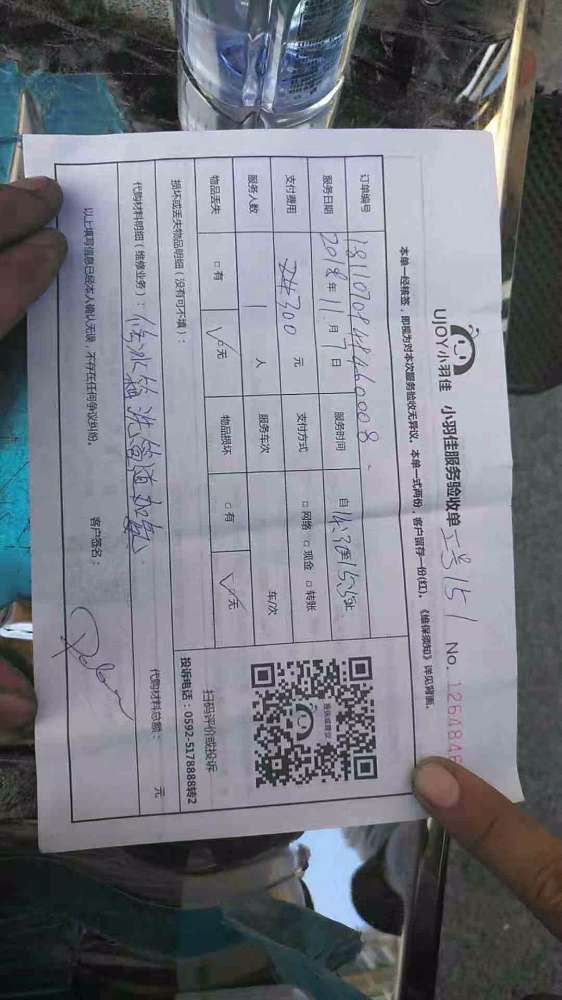 UJOY小羽佳 小羽佳服务验收单 工号151 No. 1264846
本单一经核签，即视为对本次服务验收无异议。本单一式两份，客户留存一份(红)。《维保须知》详见背面。
订单编号
服务日期 2018年11月7日 服务时间 自
支付费用 300元 支付方式 □网络 □现金 □转账
服务人数 1 人 服务车次 车/次
物品丢失 □有 ☑无 物品损坏 □有 ☑无
扫码评价或投诉
投诉电话：0592-5178888转2
损坏或丢失物品明细（没有可不填）：
代购材料明细（维修业务）：修冰箱 洗管道加氟 代购材料总额： 元
以上填写信息已经本人确认无误，不存在任何争议纠纷。 客户签名：